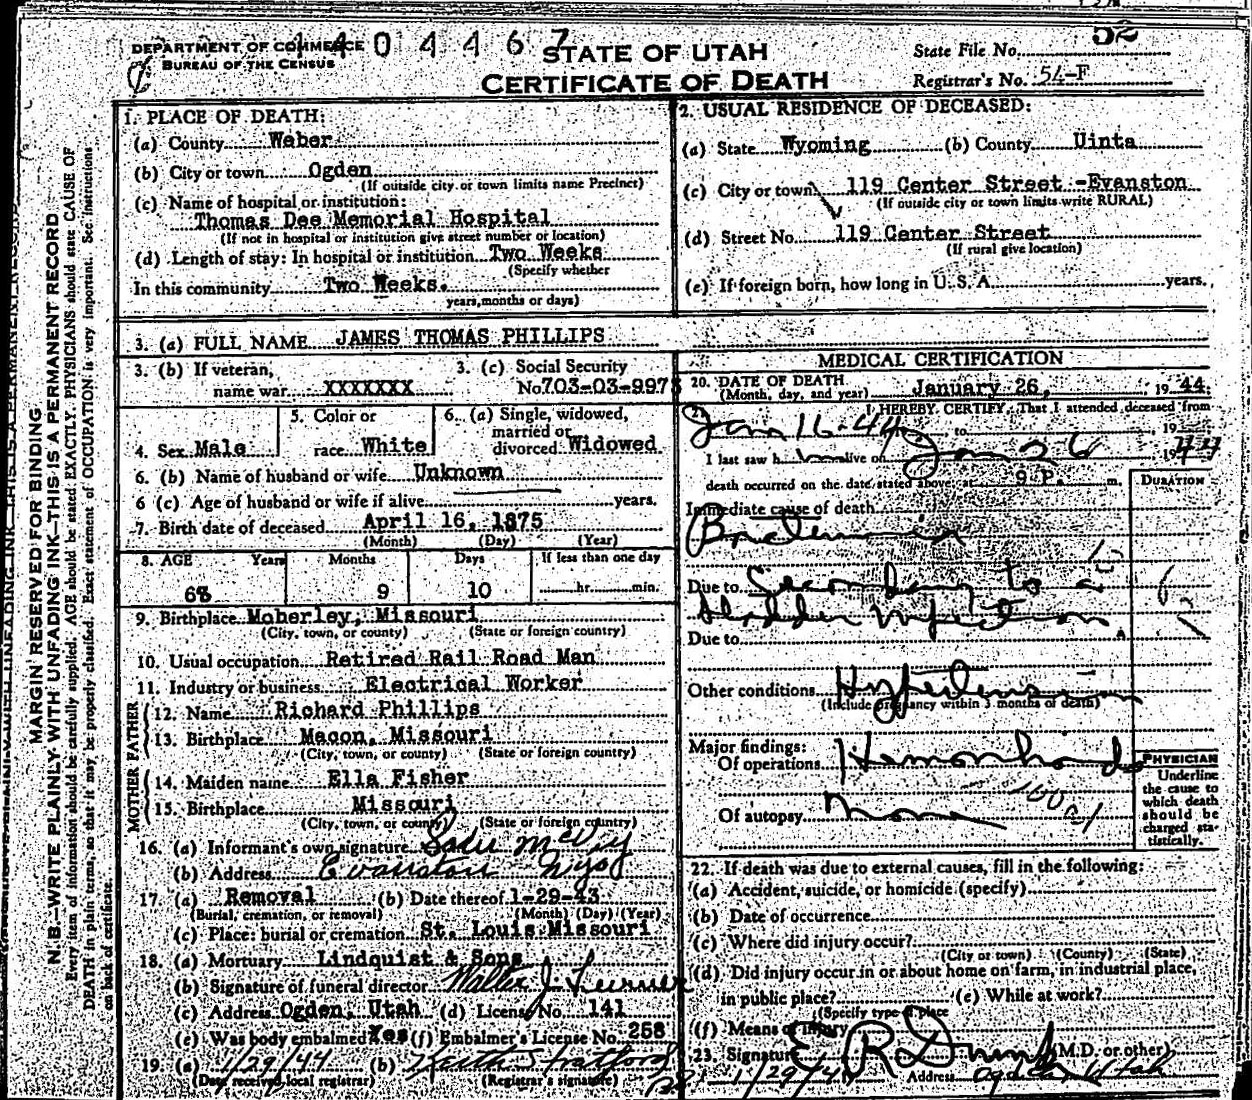 1404467
DEPARTMENT OF COMMERCE
BUREAU OF THE CENSUS
STATE OF UTAH
CERTIFICATE OF DEATH
State File No. 52
Registrar's No. 54-F
MARGIN RESERVED FOR BINDING
N. B.—WRITE PLAINLY WITH UNFADING INK—THIS IS A PERMANENT RECORD
Every item of information should be carefully supplied. AGE should be stated EXACTLY. PHYSICIANS should state CAUSE OF
DEATH in plain terms, so that it may be properly classified. Exact statement of OCCUPATION is very important. See instructions
on back of certificate.
1. PLACE OF DEATH:
(a) County Weber
(b) City or town Ogden
(If outside city or town limits name Precinct)
(c) Name of hospital or institution:
Thomas Dee Memorial Hospital
(If not in hospital or institution give street number or location)
(d) Length of stay: In hospital or institution Two Weeks
(Specify whether
In this community Two Weeks.
years, months or days)
2. USUAL RESIDENCE OF DECEASED:
(a) State Wyoming (b) County Uinta
(c) City or town 119 Center Street -Evanston
(If outside city or town limits write RURAL)
(d) Street No. 119 Center Street
(If rural give location)
(e) If foreign born, how long in U. S. A. years.
3. (a) FULL NAME JAMES THOMAS PHILLIPS
3. (b) If veteran,
name war XXXXXXX
3. (c) Social Security
No. 703-03-9975
4. Sex Male
5. Color or
race White
6. (a) Single, widowed,
married or
divorced Widowed
6. (b) Name of husband or wife Unknown
6 (c) Age of husband or wife if alive years.
7. Birth date of deceased April 16, 1875
(Month) (Day) (Year)
8. AGE Years Months Days If less than one day
68 9 10 hr. min.
9. Birthplace Moberley, Missouri
(City, town, or county) (State or foreign country)
10. Usual occupation Retired Rail Road Man
11. Industry or business Electrical Worker
FATHER
12. Name Richard Phillips
13. Birthplace Macon, Missouri
(City, town, or county) (State or foreign country)
MOTHER
14. Maiden name Ella Fisher
15. Birthplace Missouri
(City, town, or county) (State or foreign country)
16. (a) Informant's own signature Sadie McVey
(b) Address Evanston Wyo
17. (a) Removal (b) Date thereof 1-29-43
(Burial, cremation, or removal) (Month) (Day) (Year)
(c) Place: burial or cremation St. Louis Missouri
18. (a) Mortuary Lindquist & Sons
(b) Signature of funeral director Walter J.
(c) Address Ogden, Utah (d) License No. 141
(e) Was body embalmed Yes (f) Embalmer's License No. 258
19. (a) 1/29/44 (b) Keith Stratford
(Date received local registrar) (Registrar's signature)
MEDICAL CERTIFICATION
20. DATE OF DEATH
(Month, day, and year) January 26, 1944
21. I HEREBY CERTIFY, That I attended deceased from
Jan 16-44, to 19
I last saw him alive on Jan 26 1944
death occurred on the date stated above, at 9 P. m.
DURATION
Immediate cause of death
Bacteremia
Due to Secondary to a
bladder infection
Due to
Other conditions Hypertension
(Include pregnancy within 3 months of death)
Major findings:
Of operations Hemorrhoids
Of autopsy none
PHYSICIAN
Underline
the cause to
which death
should be
charged sta-
tistically.
22. If death was due to external causes, fill in the following:
(a) Accident, suicide, or homicide (specify)
(b) Date of occurrence
(c) Where did injury occur?
(City or town) (County) (State)
(d) Did injury occur in or about home on farm, in industrial place,
in public place? (e) While at work?
(Specify type of place
(f) Means of injury
23. Signature E R (M.D. or other)
1/29/44 Address Ogden, Utah